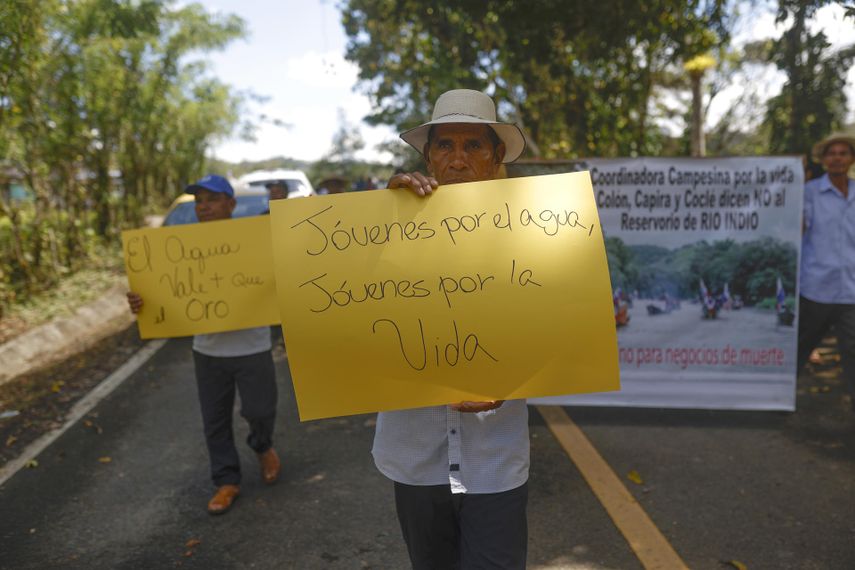 El Agua
Vale + que
el Oro
Jóvenes por el agua,
Jóvenes por la
Vida
Coordinadora Campesina por la vida
Colón, Capira y Cocle dicen NO al
Reservorio de RIO INDIO
no para negocios de muerte.